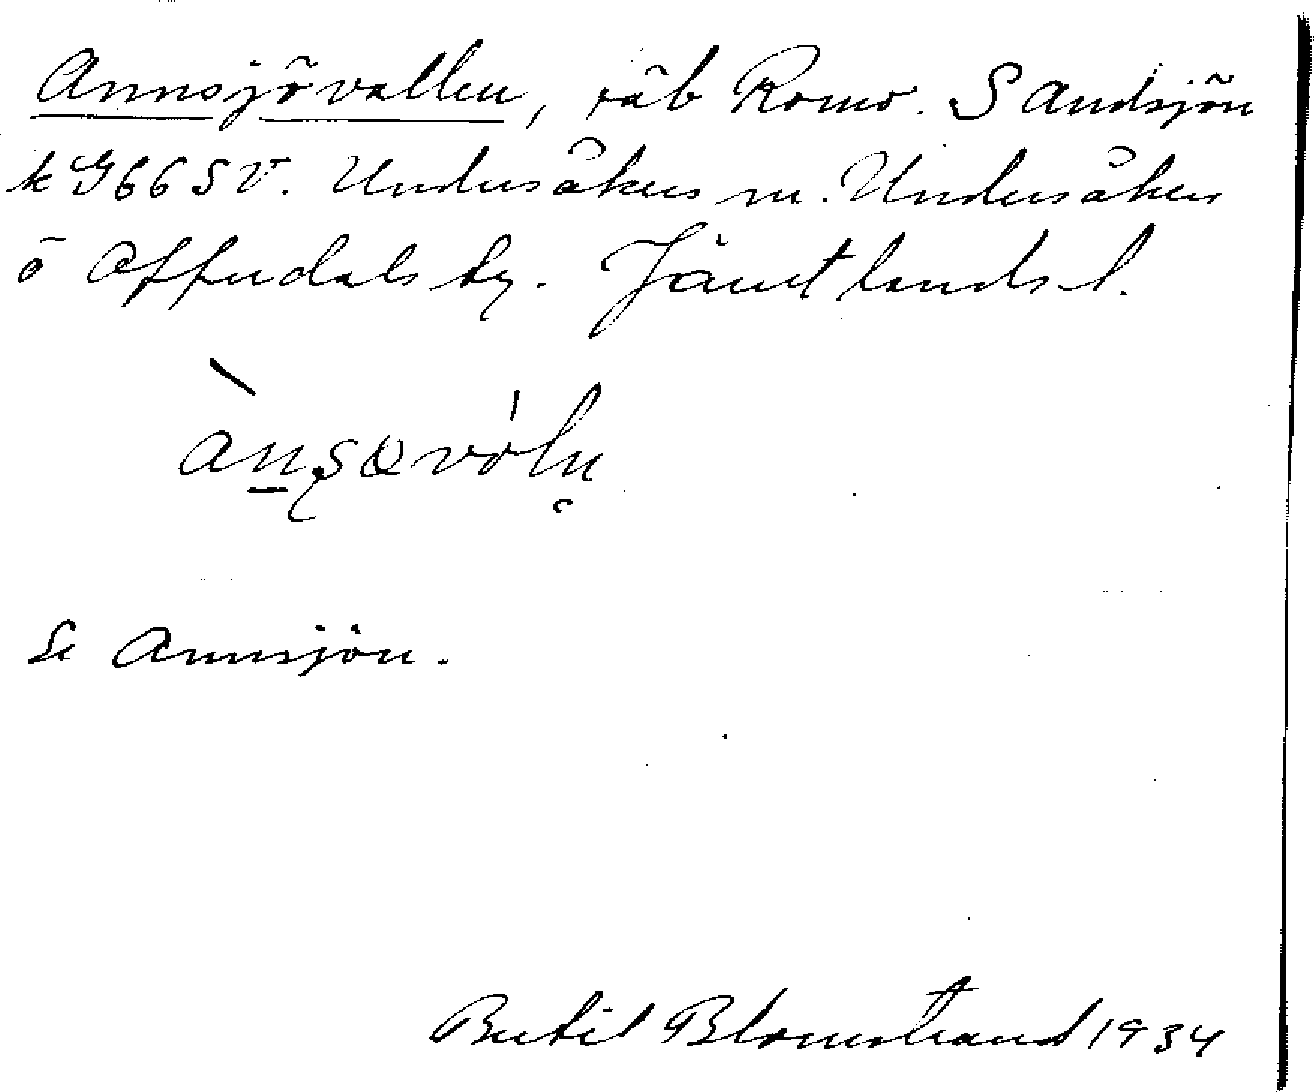 Annsjövallen, väb Romo. S Andsjön
k G66SV. Undersåkers sn. Undersåkers
o Offerdals tg. Jämtlands l.
Se Annsjön.
Bertil Blomstrand 1934